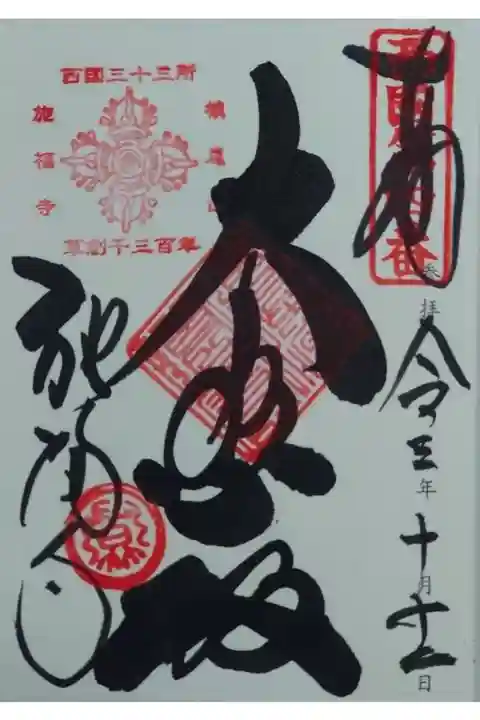 西国第四番
奉
参拝
令和三年十月十二日
大悲殿
西国三十三所
槇尾山
施福寺
草創千三百年
施福寺